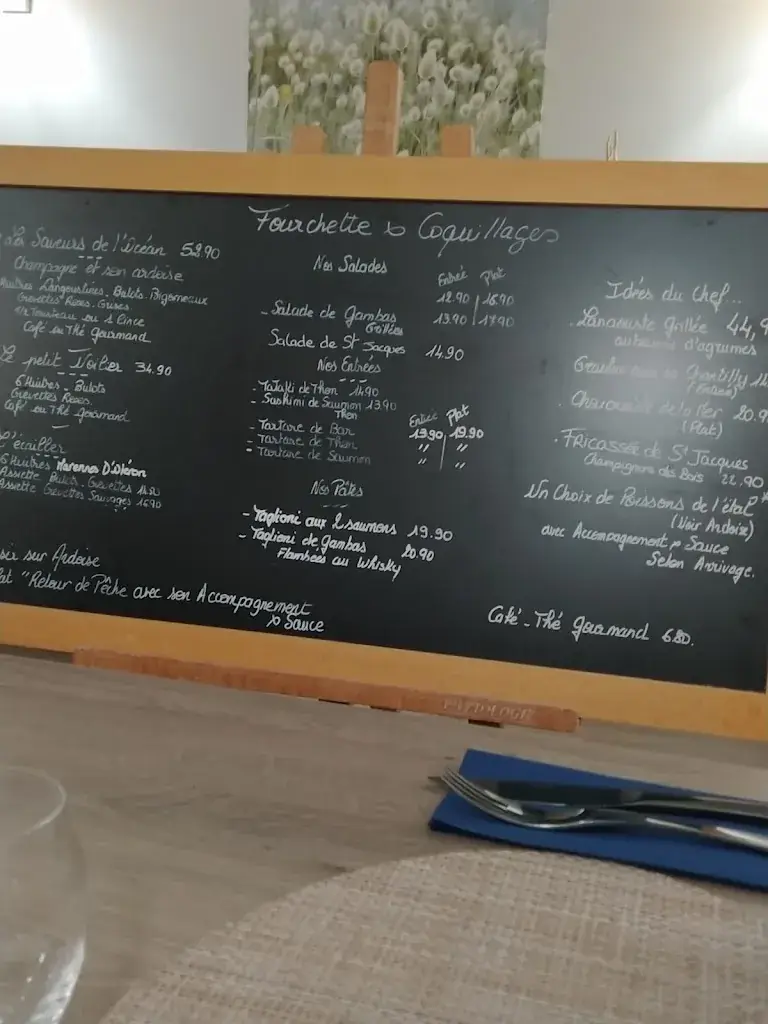 Fourchette & Coquillages
Les Saveurs de l'Océan 52.90
Champagne et son ardoise
Huîtres Langoustines. Bulots. Bigorneaux
Crevettes Roses. Grises
1/2 Tourteau ou 1 Pince
Café ou Thé gourmand
Le petit Voilier 34.90
6 Huîtres - Bulots
Crevettes Roses.
Café ou Thé gourmand
L'écailler
6 Huîtres Marennes D'Oléron
Assiette Bulots. Crevettes
Assiette Crevettes Sauvages 16.90
sur Ardoise
"Retour de Pêche avec son Accompagnement
& Sauce
Nos Salades
Entrée Plat
12.90 16.90
- Salade de Gambas 13.90 17.90
Grillées
Salade de St Jacques 14.90
Nos Entrées
- Tataki de Thon 14.90
- Sashimi de Saumon 13.90
Thon
Entrée Plat
- Tartare de Bar 13.90 19.90
- Tartare de Thon " "
- Tartare de Saumon " "
Nos Pâtes
- Taglioni aux 2 saumons 19.90
- Taglioni de Gambas 20.90
Flambées au Whisky
Idées du Chef..
. Langouste Grillée 44,9
d'agrumes
Chantilly
(Entrée)
. Choucroute de la Mer 20.9
(Plat)
. Fricassée de St Jacques
Champignons des Bois 22.90
Un Choix de Poissons de l'étal
(Voir Ardoise)
avec Accompagnement & Sauce
Selon Arrivage.
Café - Thé gourmand 6.80.